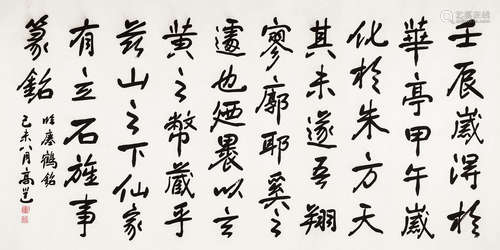 壬辰歲得於
華亭甲午歲
化於朱方天
其未遂吾翔
寥廓耶奚之
遽也廼裹以玄
黃之幣藏乎
兹山之下仙家
有立石旌事
篆銘
臨瘞鶴銘
己未八月高